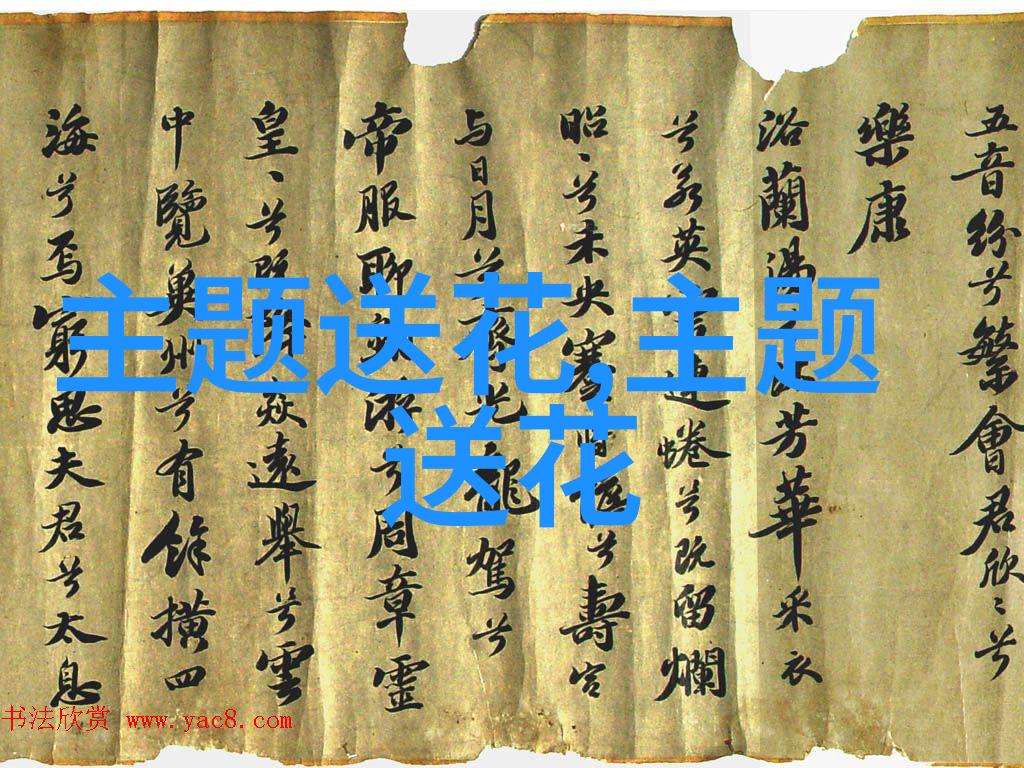 五音紛兮繁會君欣〻兮
樂康
浴蘭湯芳華采衣
兮若英連蜷兮既留爛
昭〻兮未央蹇兮壽宮
与日月兮齊光龍駕兮
帝服聊游兮周章靈
皇〻兮既降猋遠舉兮雲
中覽冀州兮有餘橫四
海兮焉窮思夫君兮太息
主题送花,主题
送花
书法欣赏 www.yac8.com